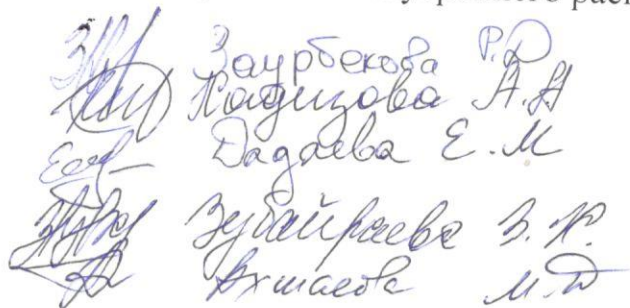 Заурбекова Р.Д
Хадизова А.А
Дадаева Е.М
Зубайраева З.Х.
М.Д